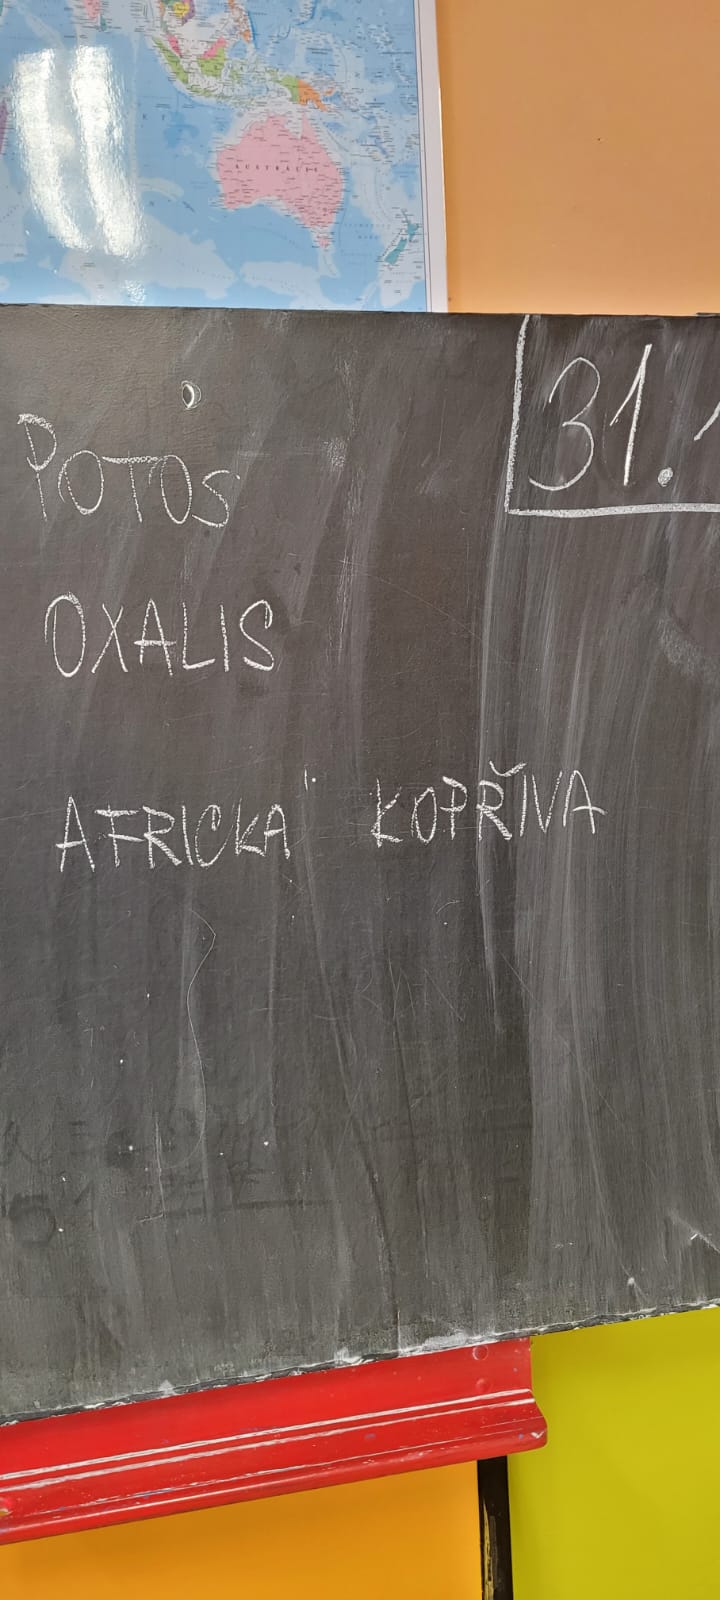 AUSTRÁLIE
31.
POTOS
OXALIS
AFRICKÁ KOPŘIVA